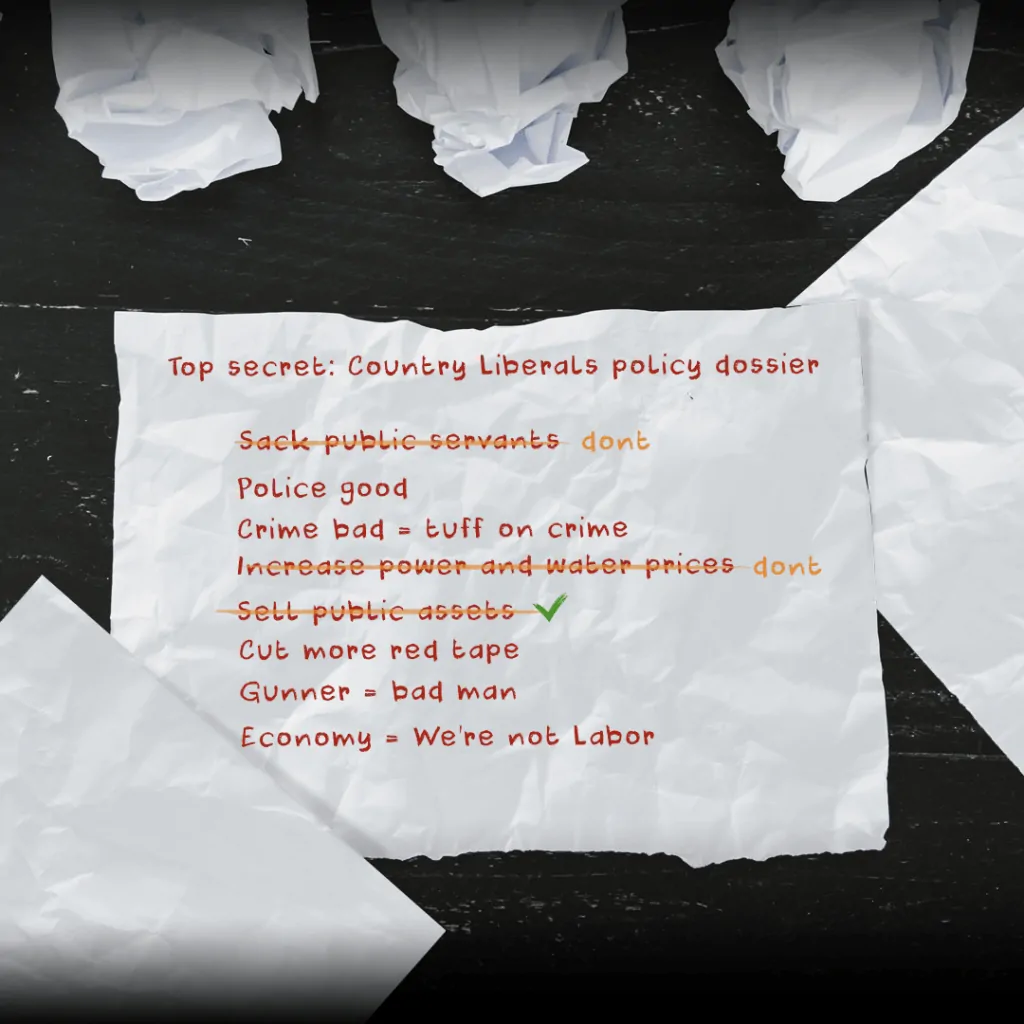 Top secret: Country Liberals policy dossier
Sack public servants dont
Police good
Crime bad = tuff on crime
Increase power and water prices dont
Sell public assets
Cut more red tape
Gunner = bad man
Economy = We're not Labor